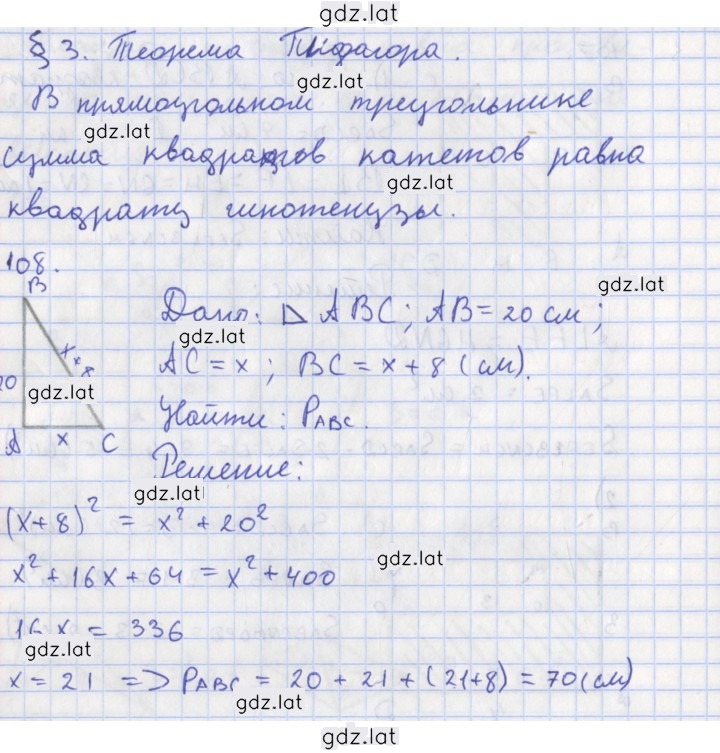 gdz.lat
§ 3. Теорема Пифагора.
gdz.lat
В прямоугольном треугольнике
gdz.lat
сумма квадратов катетов равна
gdz.lat
квадрату гипотенузы.
108.
B
gdz.lat
Дано: ⊿ ABC; AB = 20 см;
gdz.lat
x + 8
AC = x; BC = x + 8 (см).
20
gdz.lat
Найти: P_ABC.
A x C
Решение:
gdz.lat
(x+8)² = x² + 20²
gdz.lat
x² + 16x + 64 = x² + 400
16x = 336
gdz.lat
x = 21 => P_ABC = 20 + 21 + (21+8) = 70 (см)
gdz.lat
gdz.lat